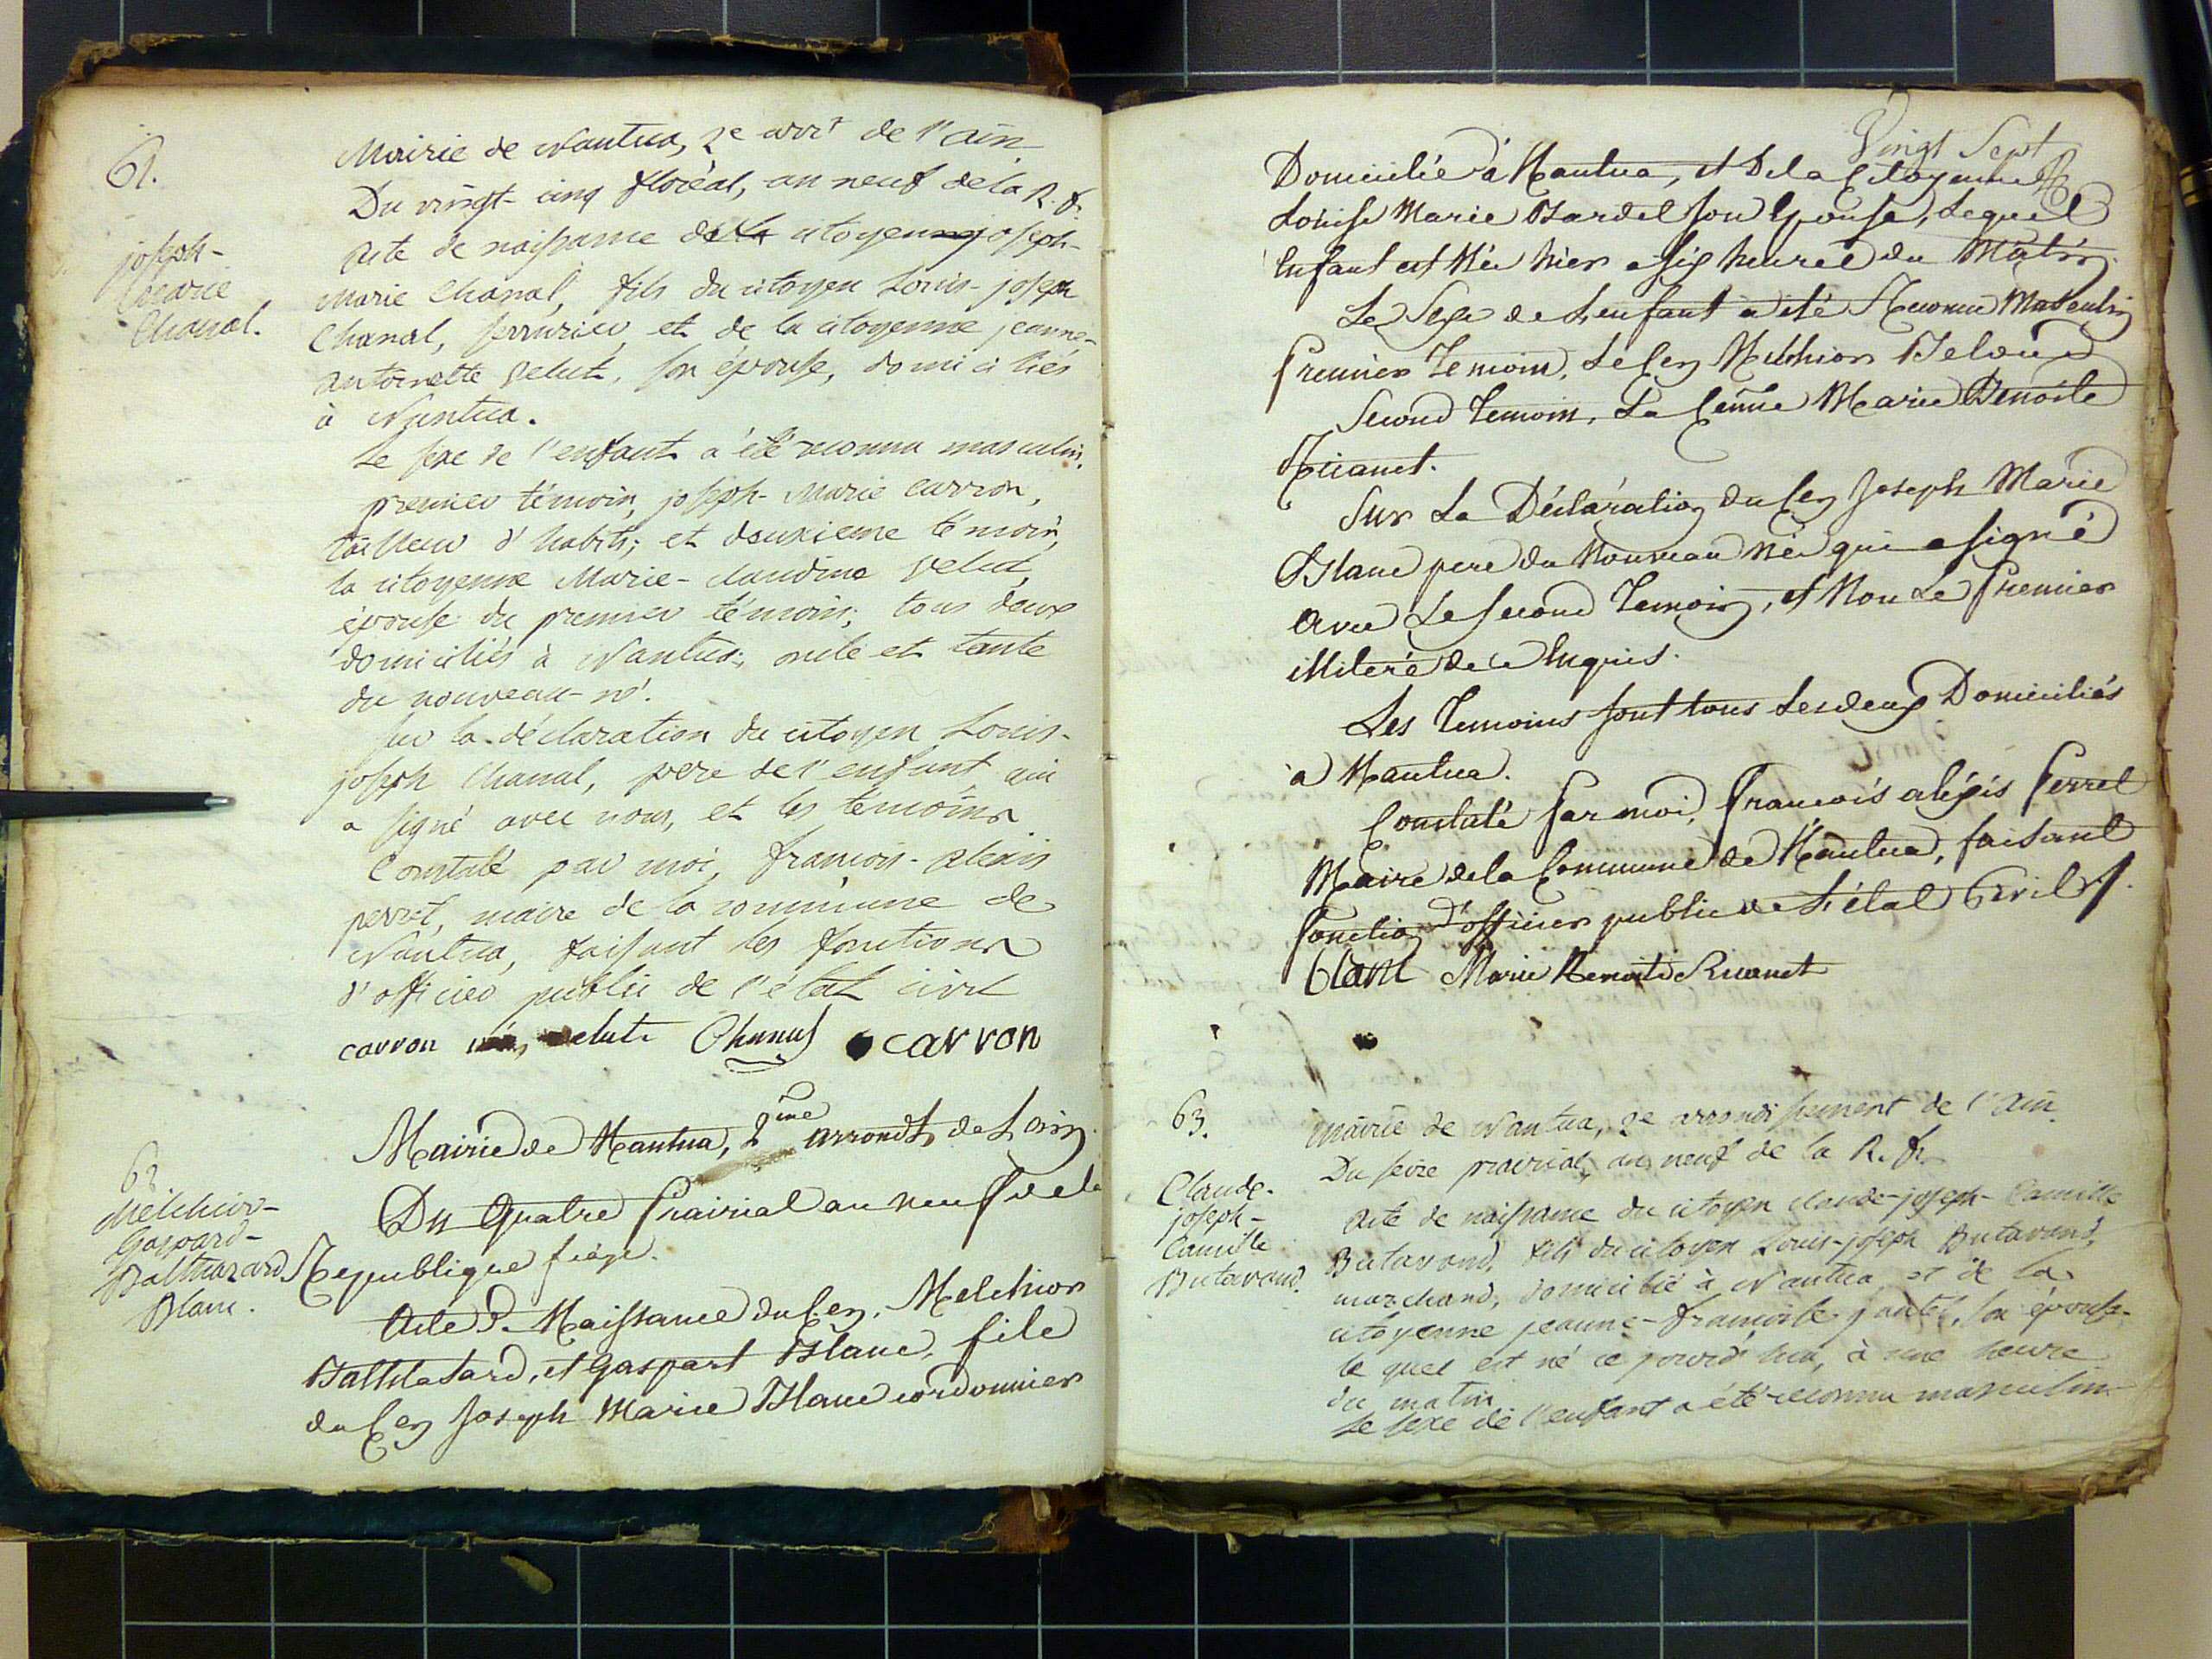 61.
joseph-
Marie
Chanal.
Mairie de Nantua, 2e arrt de l'ain
Du vingt-cinq floréal, an neuf de la R. f.
Acte de naissance de la citoyenne joseph-
Marie Chanal, fils du citoyen Louis-joseph
Chanal, serrurier et de la citoyenne jeanne-
antoinette velut, son épouse, domiciliés
à Nantua.
Le sexe de l'enfant a été reconnu masculin.
premier témoin, joseph-Marie carron,
tailleur d'habits; et deuxieme témoin,
la citoyenne Marie-claudine velut,
épouse du premier témoin; tous deux
domiciliés à Nantua; oncle et tante
du nouveau-né.
sur la déclaration du citoyen Louis-
joseph Chanal, père de l'enfant, qui
a signé avec nous, et les témoins
Constaté par moi, françois-alexis
perret, maire de la commune de
Nantua, faisant les fonctions
d'officier public de l'état civil
carron née velut Chanal carron
62
Melchior-
Gaspard-
Balthazard
Blanc.
Mairie de Nantua, 2eme arrondt de L'ain.
Du Quatre Prairial an neuf de la
Republique fçse.
Acte De Naissance du Cen. Melchior
Balthasard, et Gaspart Blanc, fils
du Cen Joseph Marie Blanc cordonnier
Vingt Sept
Domicilié à Nantua, et De la Citoyenne
Louise Marie Bardel son Epouse, Lequel
Enfant est Née hier a six heures du Matin.
Le Sexe de L'enfant a été Reconnu Masculin
Premier Temoin, Le Cen Melchior Beloud
Second Temoin, La Cenne Marie Benoite
Ricanet.
Sur La Déclaration du Cen Joseph Marie
Blanc pere du Nouveau née qui a signé
avec Le second Temoin, et Non Le Premier
illiteré de ce Enquis.
Les Temoins sont tous Les deux Domiciliés
à Nantua.
Constaté Par moi, François alexis Perret
Maire de la Commune de Nantua, faisant
Fonction d'officier public de L'état Civil
Blanc Marie Benoite Ricanet
63.
Claude-
joseph-
Camille
Butavand.
Mairie de Nantua, 2e arrondissement de l'ain.
Du seize prairial, an neuf de la R. fr.
Acte de naissance du citoyen claude-joseph-Camille
Butavand, fils du citoyen Louis-joseph Butavand,
marchand, domicilié à Nantua, et de la
citoyenne jeanne-françoise jantet, son épouse.
le quel est né ce jourd'hui, à une heure
du matin
Le sexe de l'enfant a été reconnu masculin.